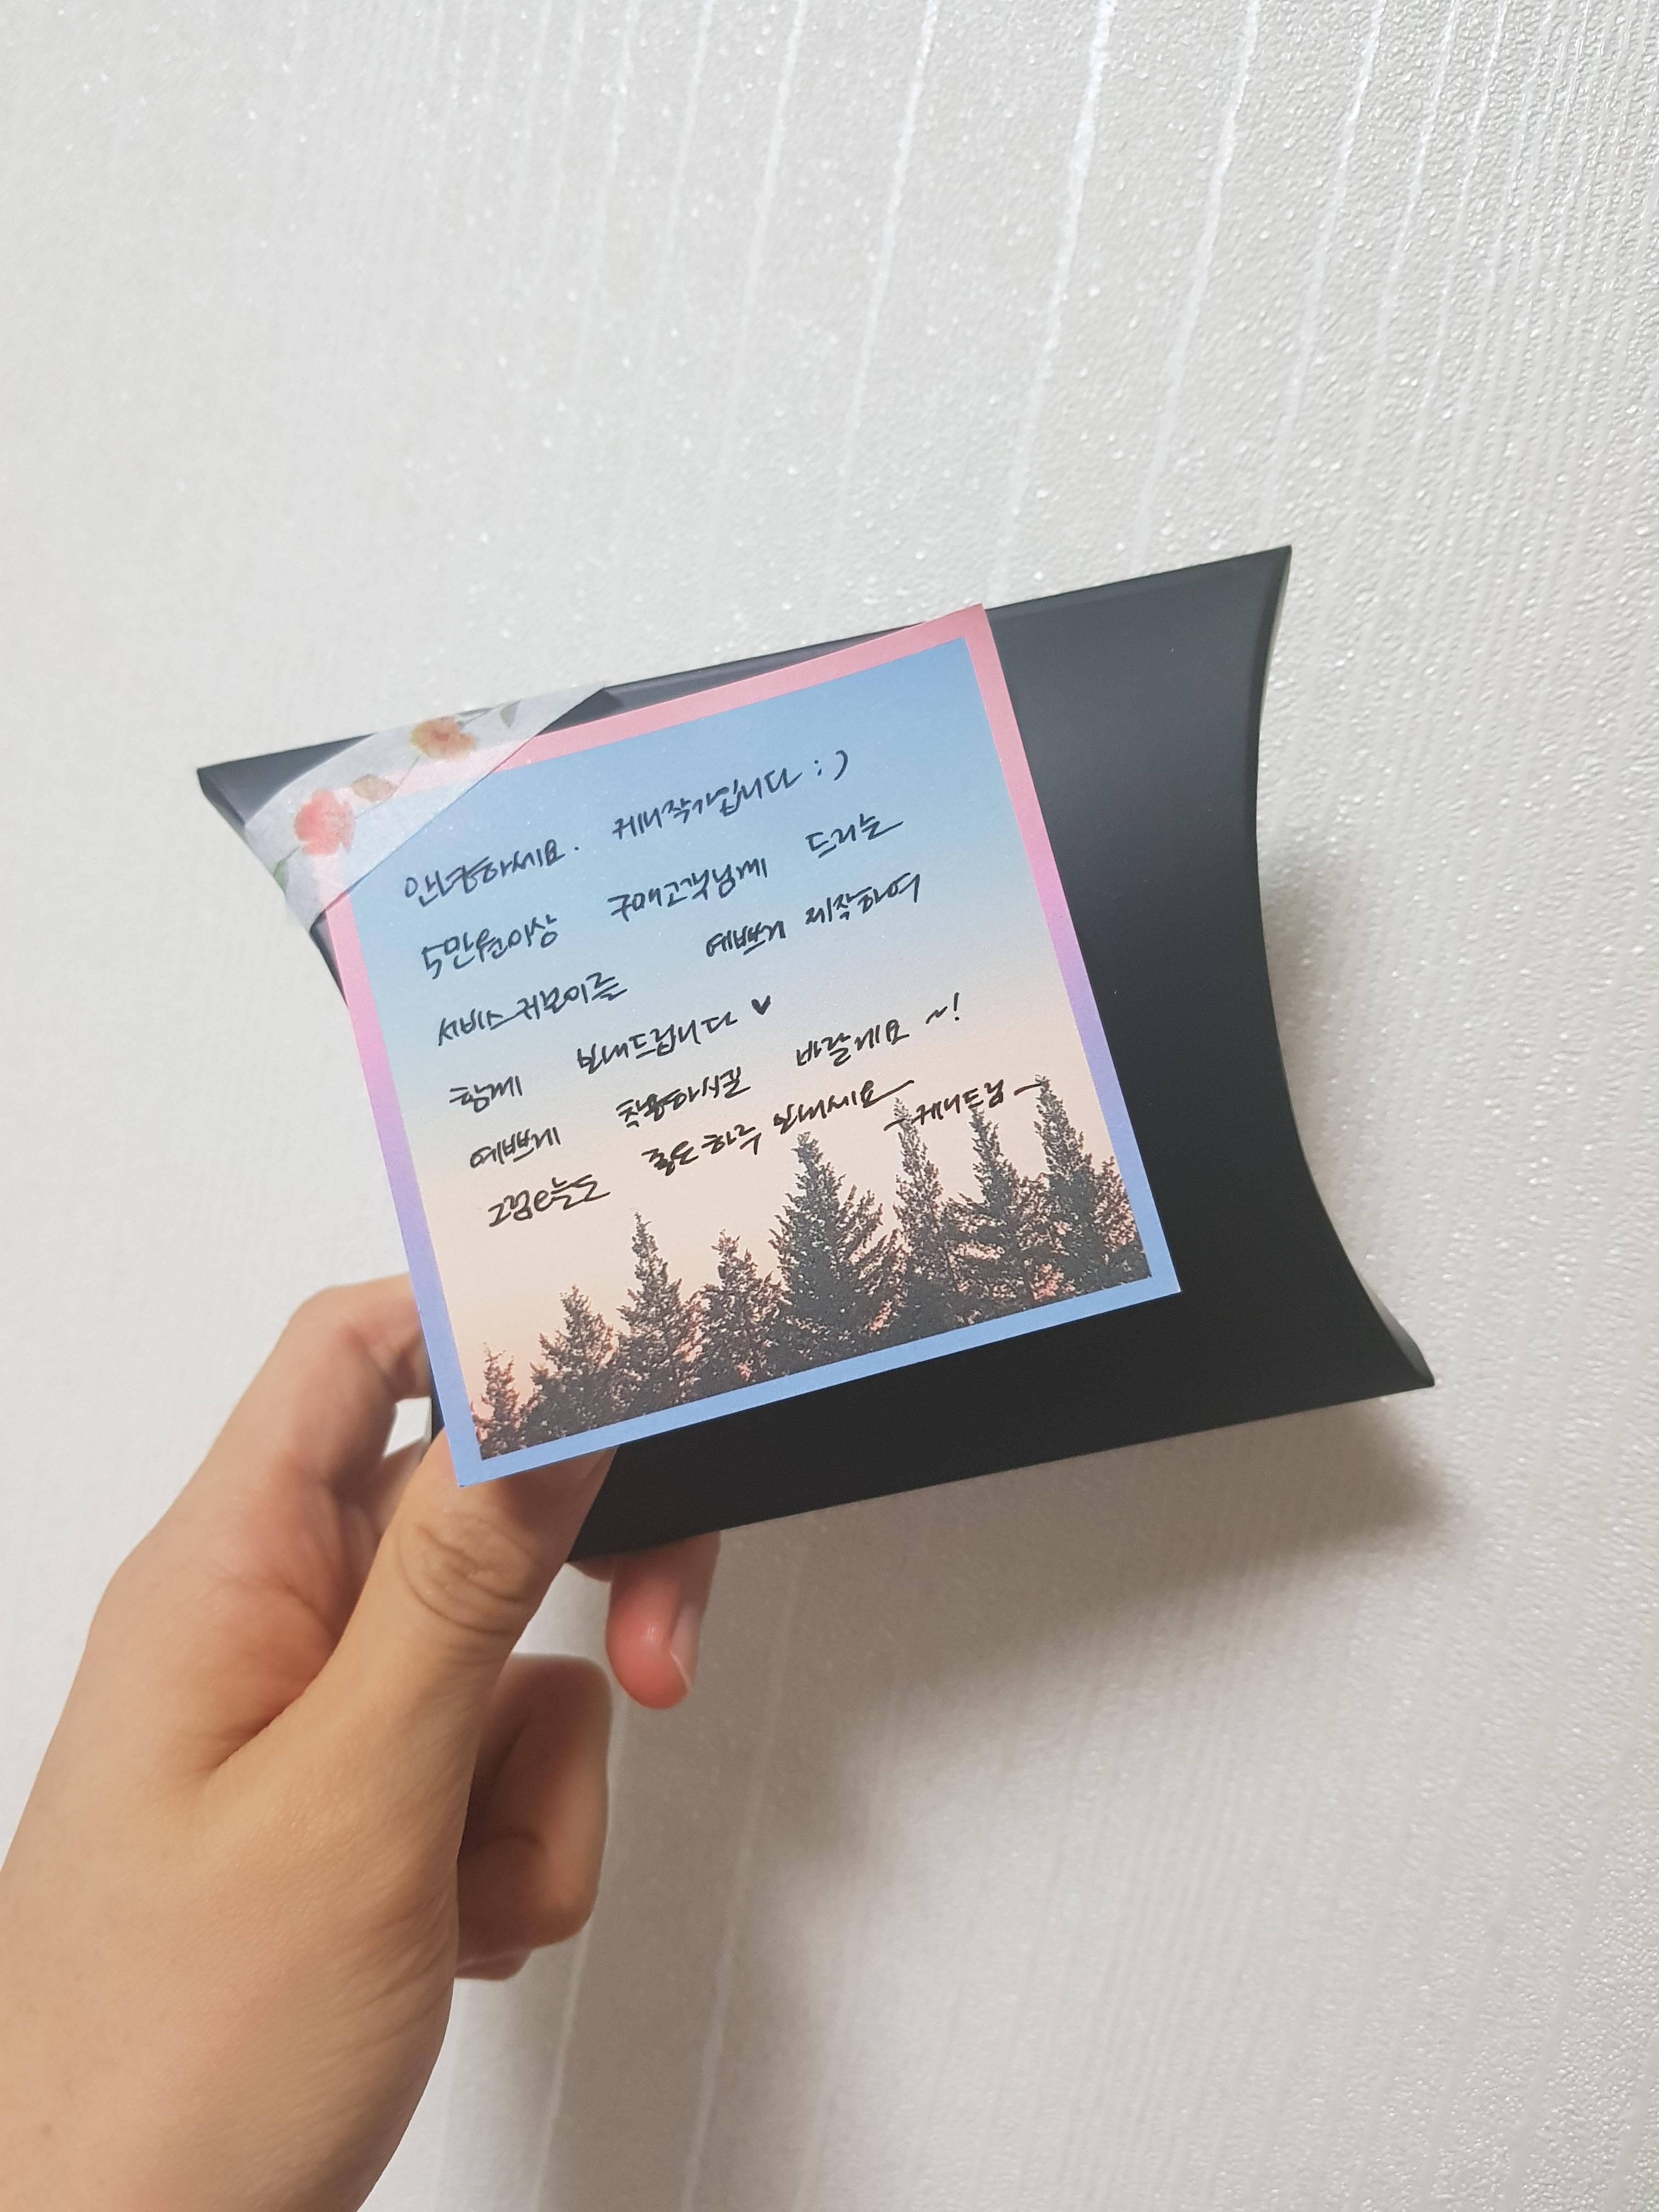 안녕하세요. 케니작가입니다 :)
5만원이상 구매고객님께 드리는
서비스귀보이를 예쁘게 제작하여
함께 보내드립니다 ♥
예쁘게 착용하시길 바랄게요 ~!
그럼 오늘도 좋은하루 보내세요